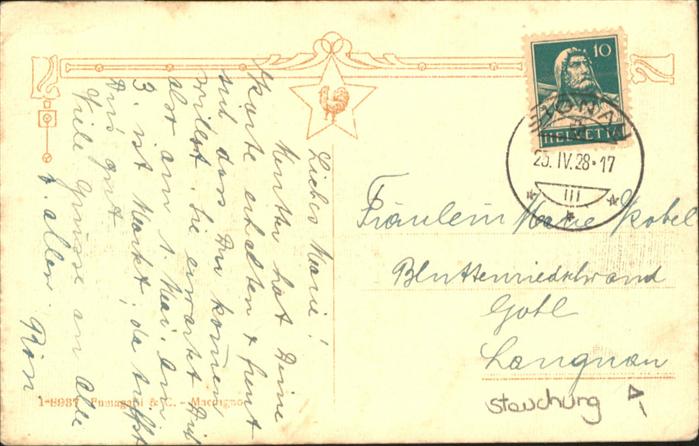 Liebes Marie!
Mutter hat Deine
Karte erhalten & freut
sich dass Du kommen
willst. Sie erwartet Dich
also am 1. Mai. Am
3. ist Markt, da trifft
Du's gut.
Viele Grüsse an Alle
v. allen.
10
HELVETIA
25.IV.28-17
III
Fräulein Marie Kobel
Gohl
Langnau
Stauchung
1-8937 Fumagalli & C. - Macugno